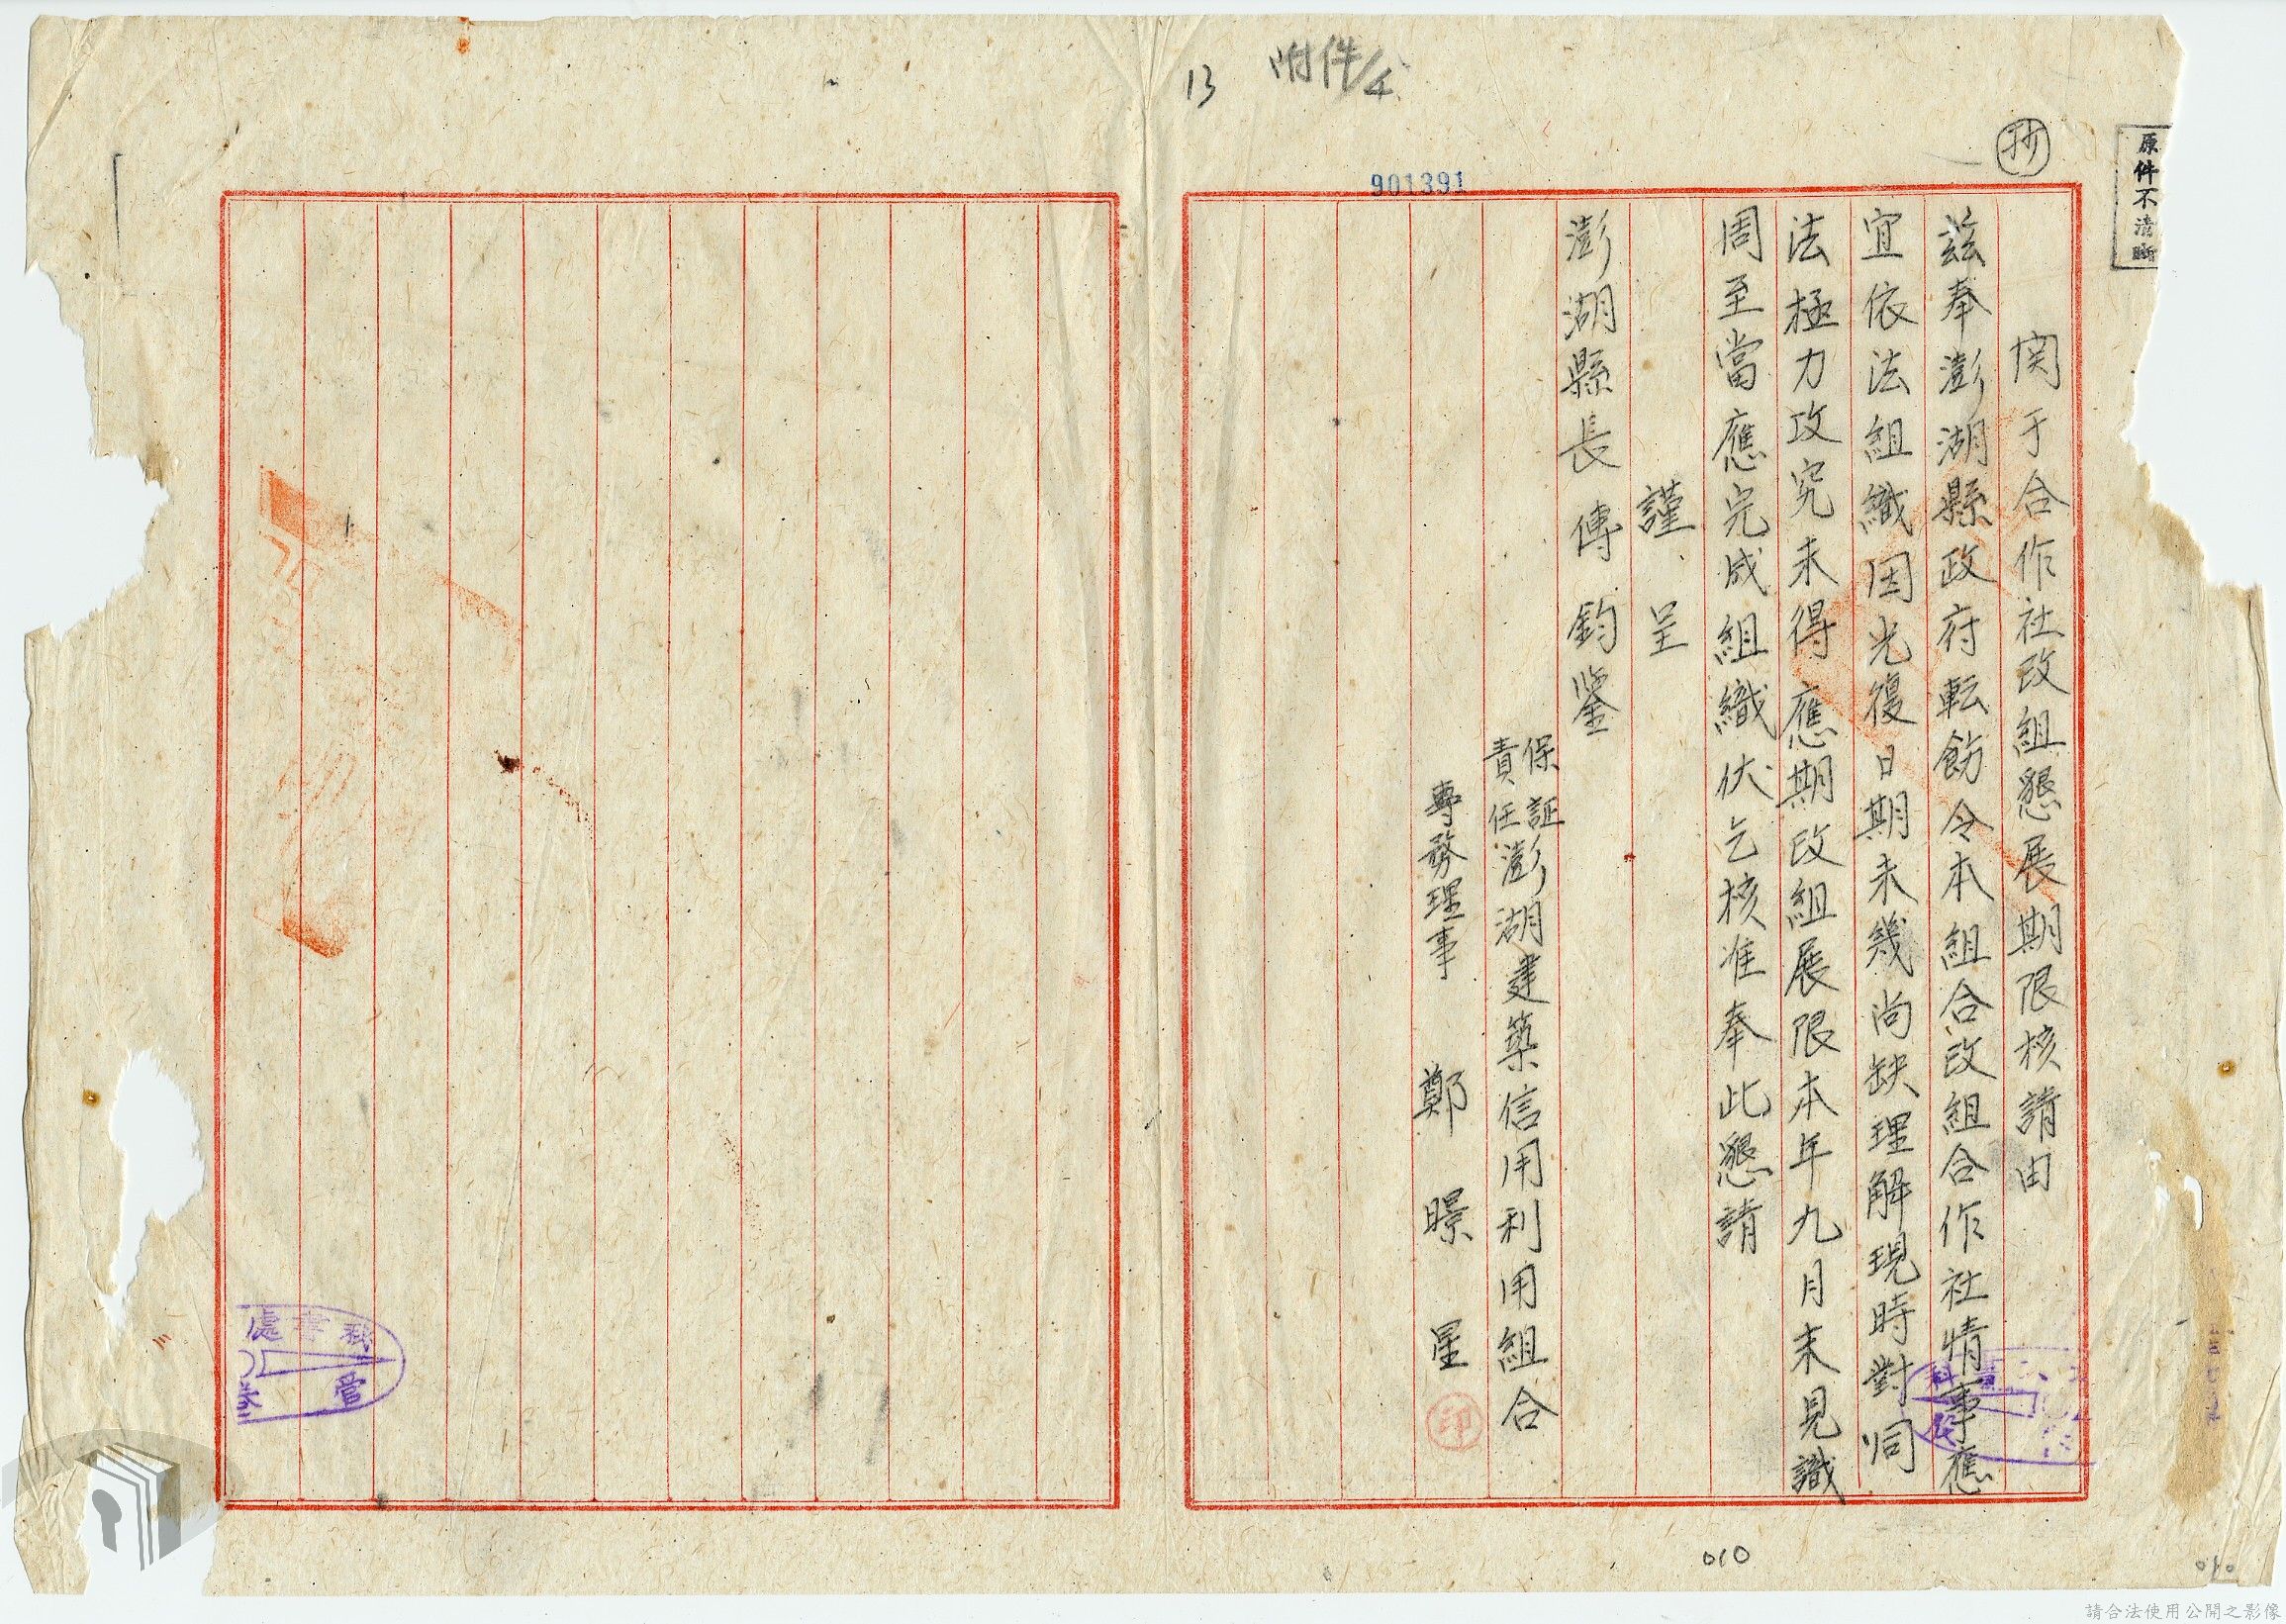 原件不清晰
抄
附件/4
13
901391
関于合作社改組懇展期限核請由
茲奉澎湖縣政府転飭令本組合改組合作社情事應
宜依法組織因光復日期未幾尚缺理解現時對同
法極力攻究未得應期改組展限本年九月末見識
周至當應完成組織伏乞核准奉此懇請
謹呈
澎湖縣長傅鈞鑒
保証
責任
澎湖建築信用利用組合
專務理事 鄭暻星
印
010
010
秘書處
請合法使用公開之影像